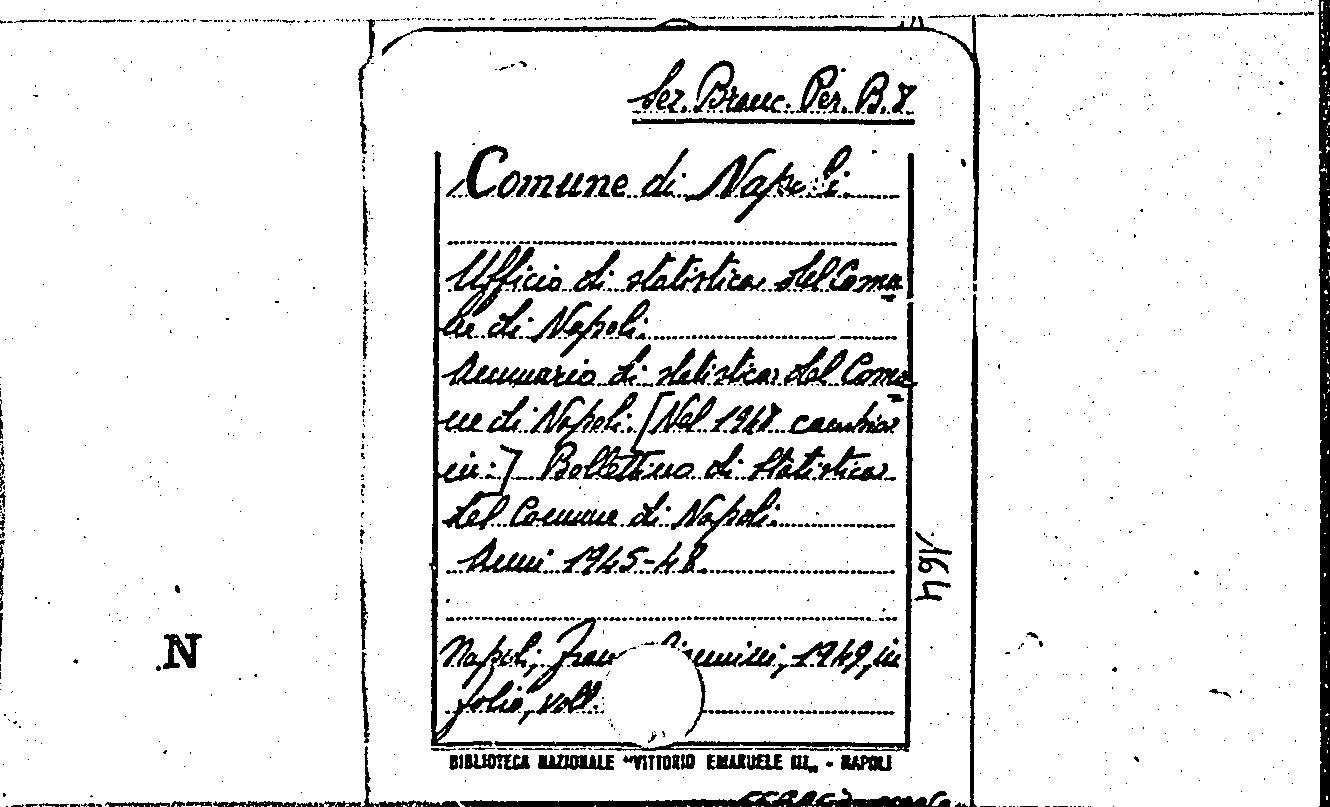 Sez. Branc. Per. B. 8
Comune di Napoli.
Ufficio di statistica del Comu
ne di Napoli.
Annuario di statistica del Comu
ne di Napoli. [Nel 1948 cambia
in:] Bollettino di Statistica
del Comune di Napoli.
Anni 1945-48.
164
N
Napoli, 1949, in
folio, voll.
BIBLIOTECA NAZIONALE "VITTORIO EMANUELE III„ - NAPOLI